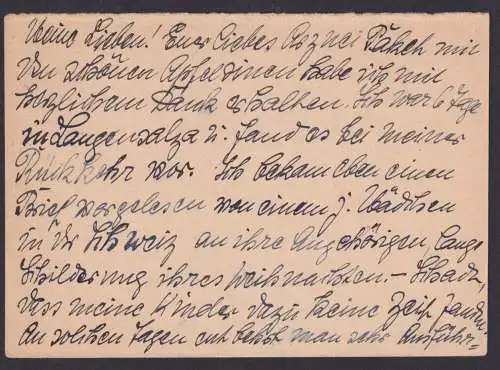 Meine Lieben! Euer liebes Arznei Päkch mit
den schönen Apfelsinen habe ich mit
herzlichem Dank erhalten. Ich war 6 Tage
in Langensalza u. fand es bei meiner
Rückkehr vor. Ich bekam eben einen
Brief vorgelesen von einem j. Mädchen
in der Schweiz an ihre Angehörigen lange
Schilderung ihres Weihnachten. – Schade,
dass meine Kinder dazu keine Zeit fanden.
An solchen Tagen entbehrt man sehr Ausführ-